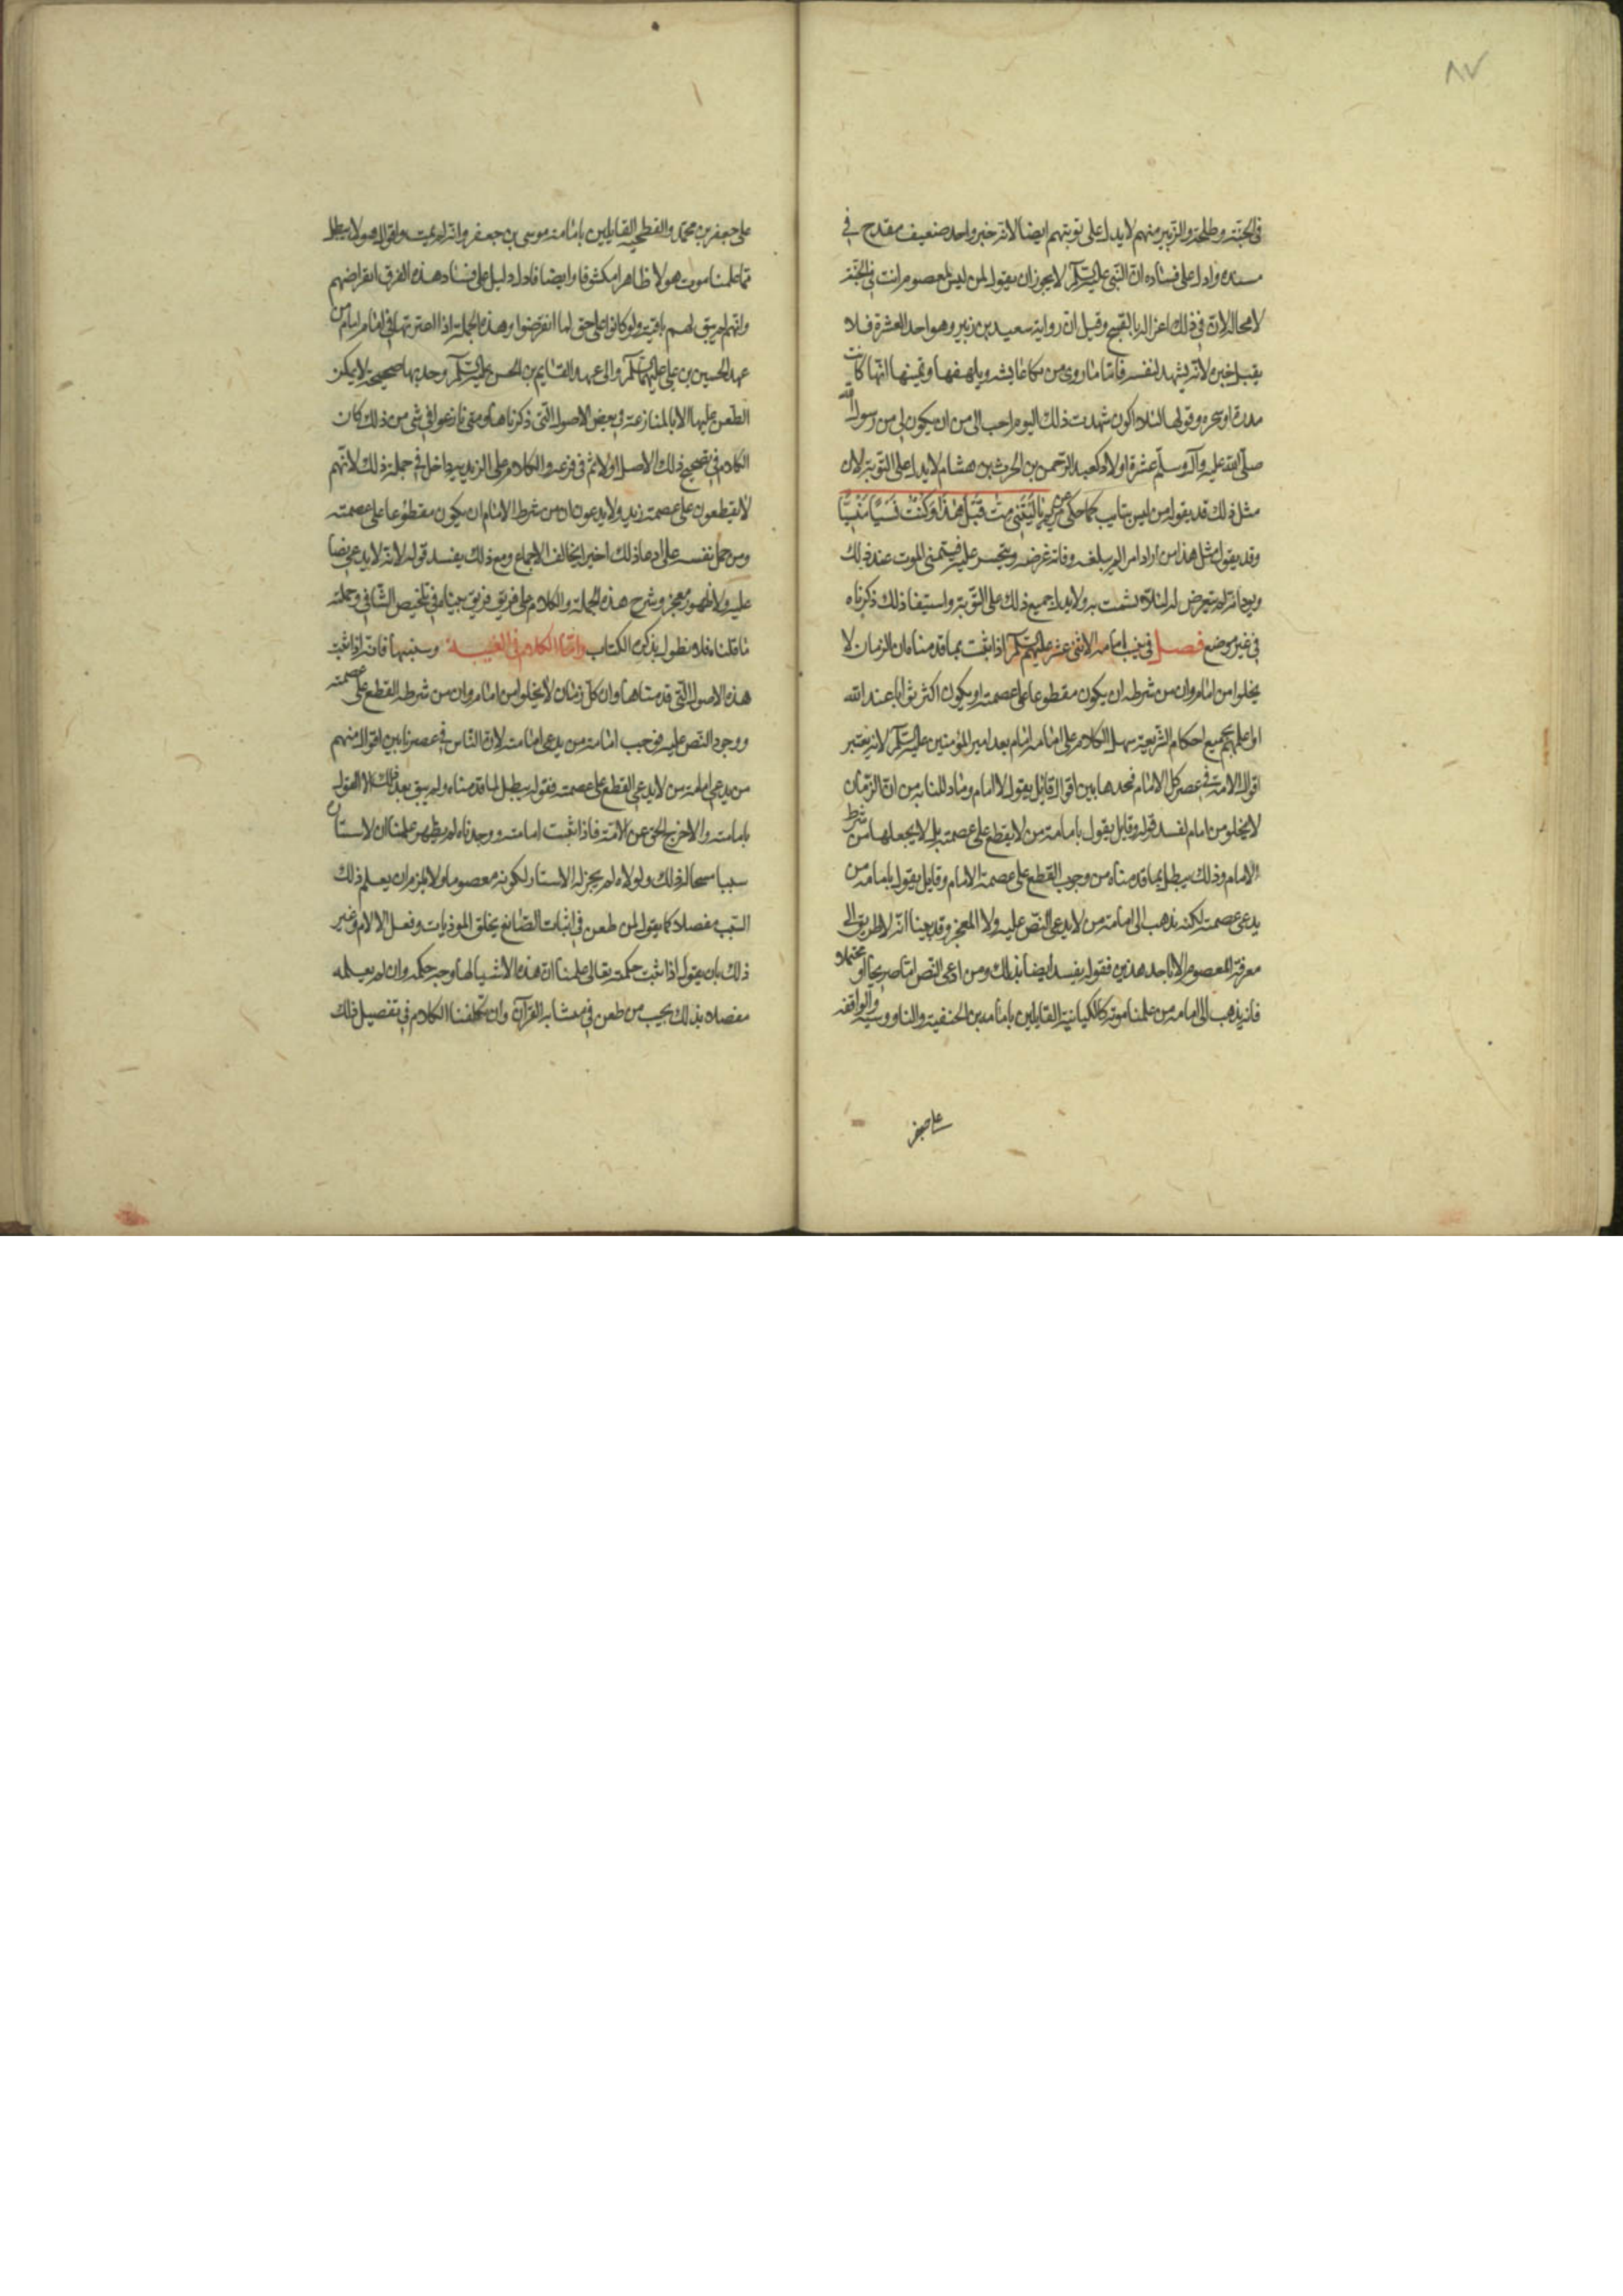 ٨٧
في الجنة وطلحة والزبير منهم لا يدل على توبتهم ايضا لانه خبر واحد ضعيف مقدح في
سنده وادل على فساده ان النبي عليه السلم لا يجوز ان يقول لمن ليس بمعصوم انت في الجنة
لا محالة لان في ذلك اغراء له بالقبيح وقيل ان رواية سعيد بن زبير وهو احد العشرة فلا
يقبل خبره لانه يشهد لنفسه فاما ما روى من بكا عايشه وتلهفها وتمنيها انها كانت
مدرة او شجرة وقولها لئلا اكون شهدت ذلك اليوم احب الى من ان يكون لي من رسول الله
صلى الله عليه وآله وسلم عشرة اولاد كعبد الرحمن بن الحرث بن هشام لا يدل على التوبة لان
مثل ذلك قد يقوله من ليس بتايب كما حكى عن مريم يَا لَيْتَنِي مِتُّ قَبْلَ هٰذَا وَكُنْتُ نَسْيًا مَنْسِيًّا
وقد يقول مثل هذا من اراد امرا لم يبلغه وفاته غرضه ويتحسر عليه فيتمنى الموت عند ذلك
ويود انه لم يتعرض له لئلا يشمت به ولا يدل جميع ذلك على التوبة واستيفا ذلك ذكرناه
في غير موضع فصل في تثبيت امامة الاثنى عشر عليهم السلم اذا ثبت بما قدمناه ان الزمان لا
يخلوا من امام وان من شرطه ان يكون مقطوعا على عصمته او يكون اكثر ثوابا عند الله
او اعلمهم بجميع احكام الشريعة سهل الكلام على امامة امام بعد امير المؤمنين عليه السلم لانه يعتبر
اقوال الامة في عصر كل الامام فنجدها بين اقوال قايل يقول لا امام وما دللنا به من ان الزمان
لا يخلو من امام لفسد قوله وقايل يقول بامامة من لا يقطع على عصمته بل لا يجعلها من شرط
الامام وذلك يبطل بما قدمناه من وجوب القطع على عصمة الامام وقايل يقول بامامة من
يدعى عصمته لكنه يذهب الى امامة من لا يدعى النص عليه ولا المعجز وقد بينا انه لا طريق الى
معرفة المعصوم الا باحد هذين فقوله يفسد ايضا بذلك ومن ادعى النص اما صريحا او محتملا
فانه يذهب الى امامة من علمنا موته كالكيسانية القايلين بامامة بن الحنفية والناووسية والواقفه
على جعفر
على جعفر بن محمد والفطحية القايلين بامامة موسى بن جعفر وانه لم يمت واقوال هولا يبطل
بما علمنا موت هولا ظاهرا مكشوفا وايضا فادل دليل على فساد هذه الفرق انقراضهم
وانهم لم يبق لهم باقية ولو كانوا على حق لما انقرضوا وهذه الجملة اذا اعتبرتها في امام امام من
عهد الحسين بن علي عليهما السلم والى عهد القايم بن الحسن عليه السلم وجدتها صحيحة لا يمكن
الطعن عليها الا بالمنازعة في بعض الاصول التي ذكرناها ومتى نازعوا في شى من ذلك كان
الكلام في تصحيح ذلك الاصل اولا ثم في فرعه والكلام على الزيدية داخل في جملة ذلك لانهم
لا يقطعون على عصمة زيد ولا يدعون ان من شرط الامام ان يكون مقطوعا على عصمته
ومن حمل نفسه على ادعا ذلك اخيرا يخالف الاجماع ومع ذلك يفسد قوله لانه لا يدعى نصا
عليه ولا ظهور معجز وشرح هذه الجملة والكلام على فريق فريق بيناه في تلخيص الشافي وجملة
ما قلناه فلا نطول بذكره الكتاب واما الكلام في الغيبة وسببها فانه اذا ثبت
هذه الاصول التي قدمناها وان كل زمان لا يخلوا من امام وان من شرطه القطع على عصمته
ووجود النص عليه فوجب امامة من يدعى امامته لان الناس في عصرنا بين اقوال منهم
من يدعى امامة من لا يدعى القطع على عصمته فقوله يبطل لما قدمناه ولم يبق بعد ذلك الا القول
بامامته والا خرج الحق عن الامة فاذا ثبت امامته ووجدناه لم يظهر علمنا ان لاستتاره
سببا مبيحا لذلك ولولاه لم يجز له الاستتار لكونه معصوما ولا يلزم ان يعلم ذلك
السبب مفصلا كما يقول لمن طعن في اثبات الصانع بخلق الموذيات وفعل الالام وغير
ذلك بان يقول اذا ثبت حكمته تعالى علمنا ان هذه الاشيا لها وجه حكمه وان لم يعلمه
مفصلا بذلك يجيب من طعن في متشابه القرآن وان تكلفنا الكلام في تفصيل ذلك